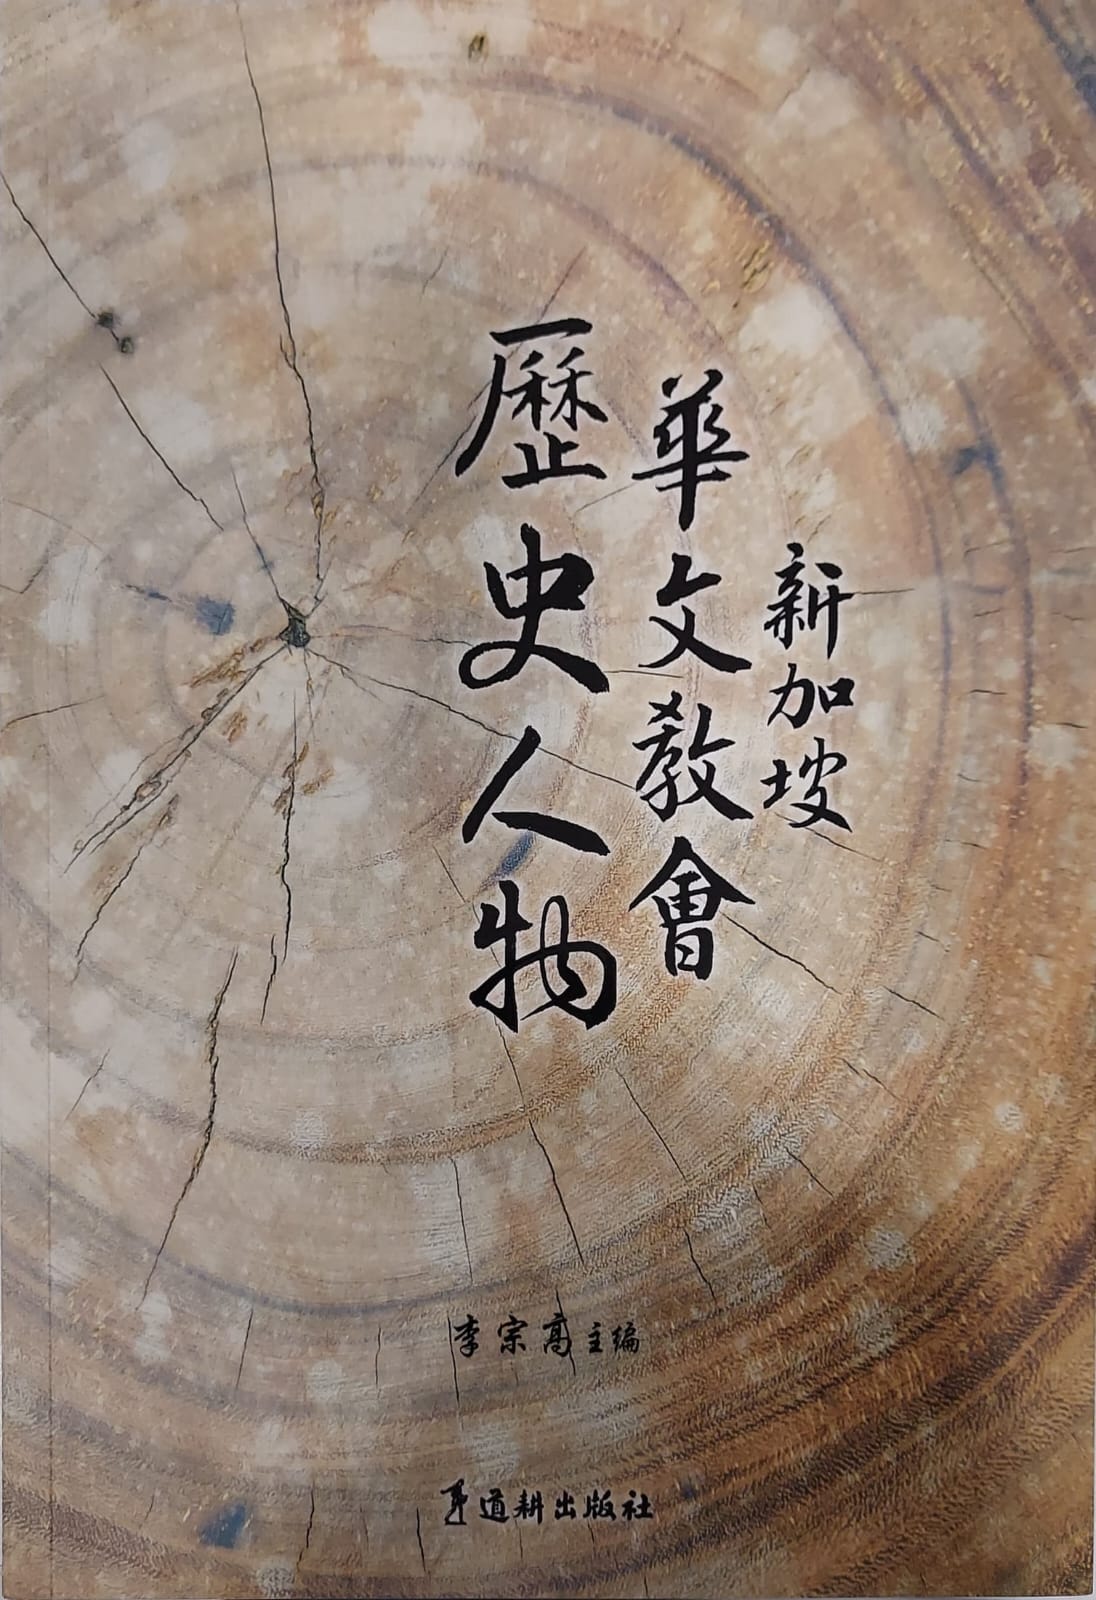 新加坡
華文教會
歷史人物
李宗高主編
道耕出版社